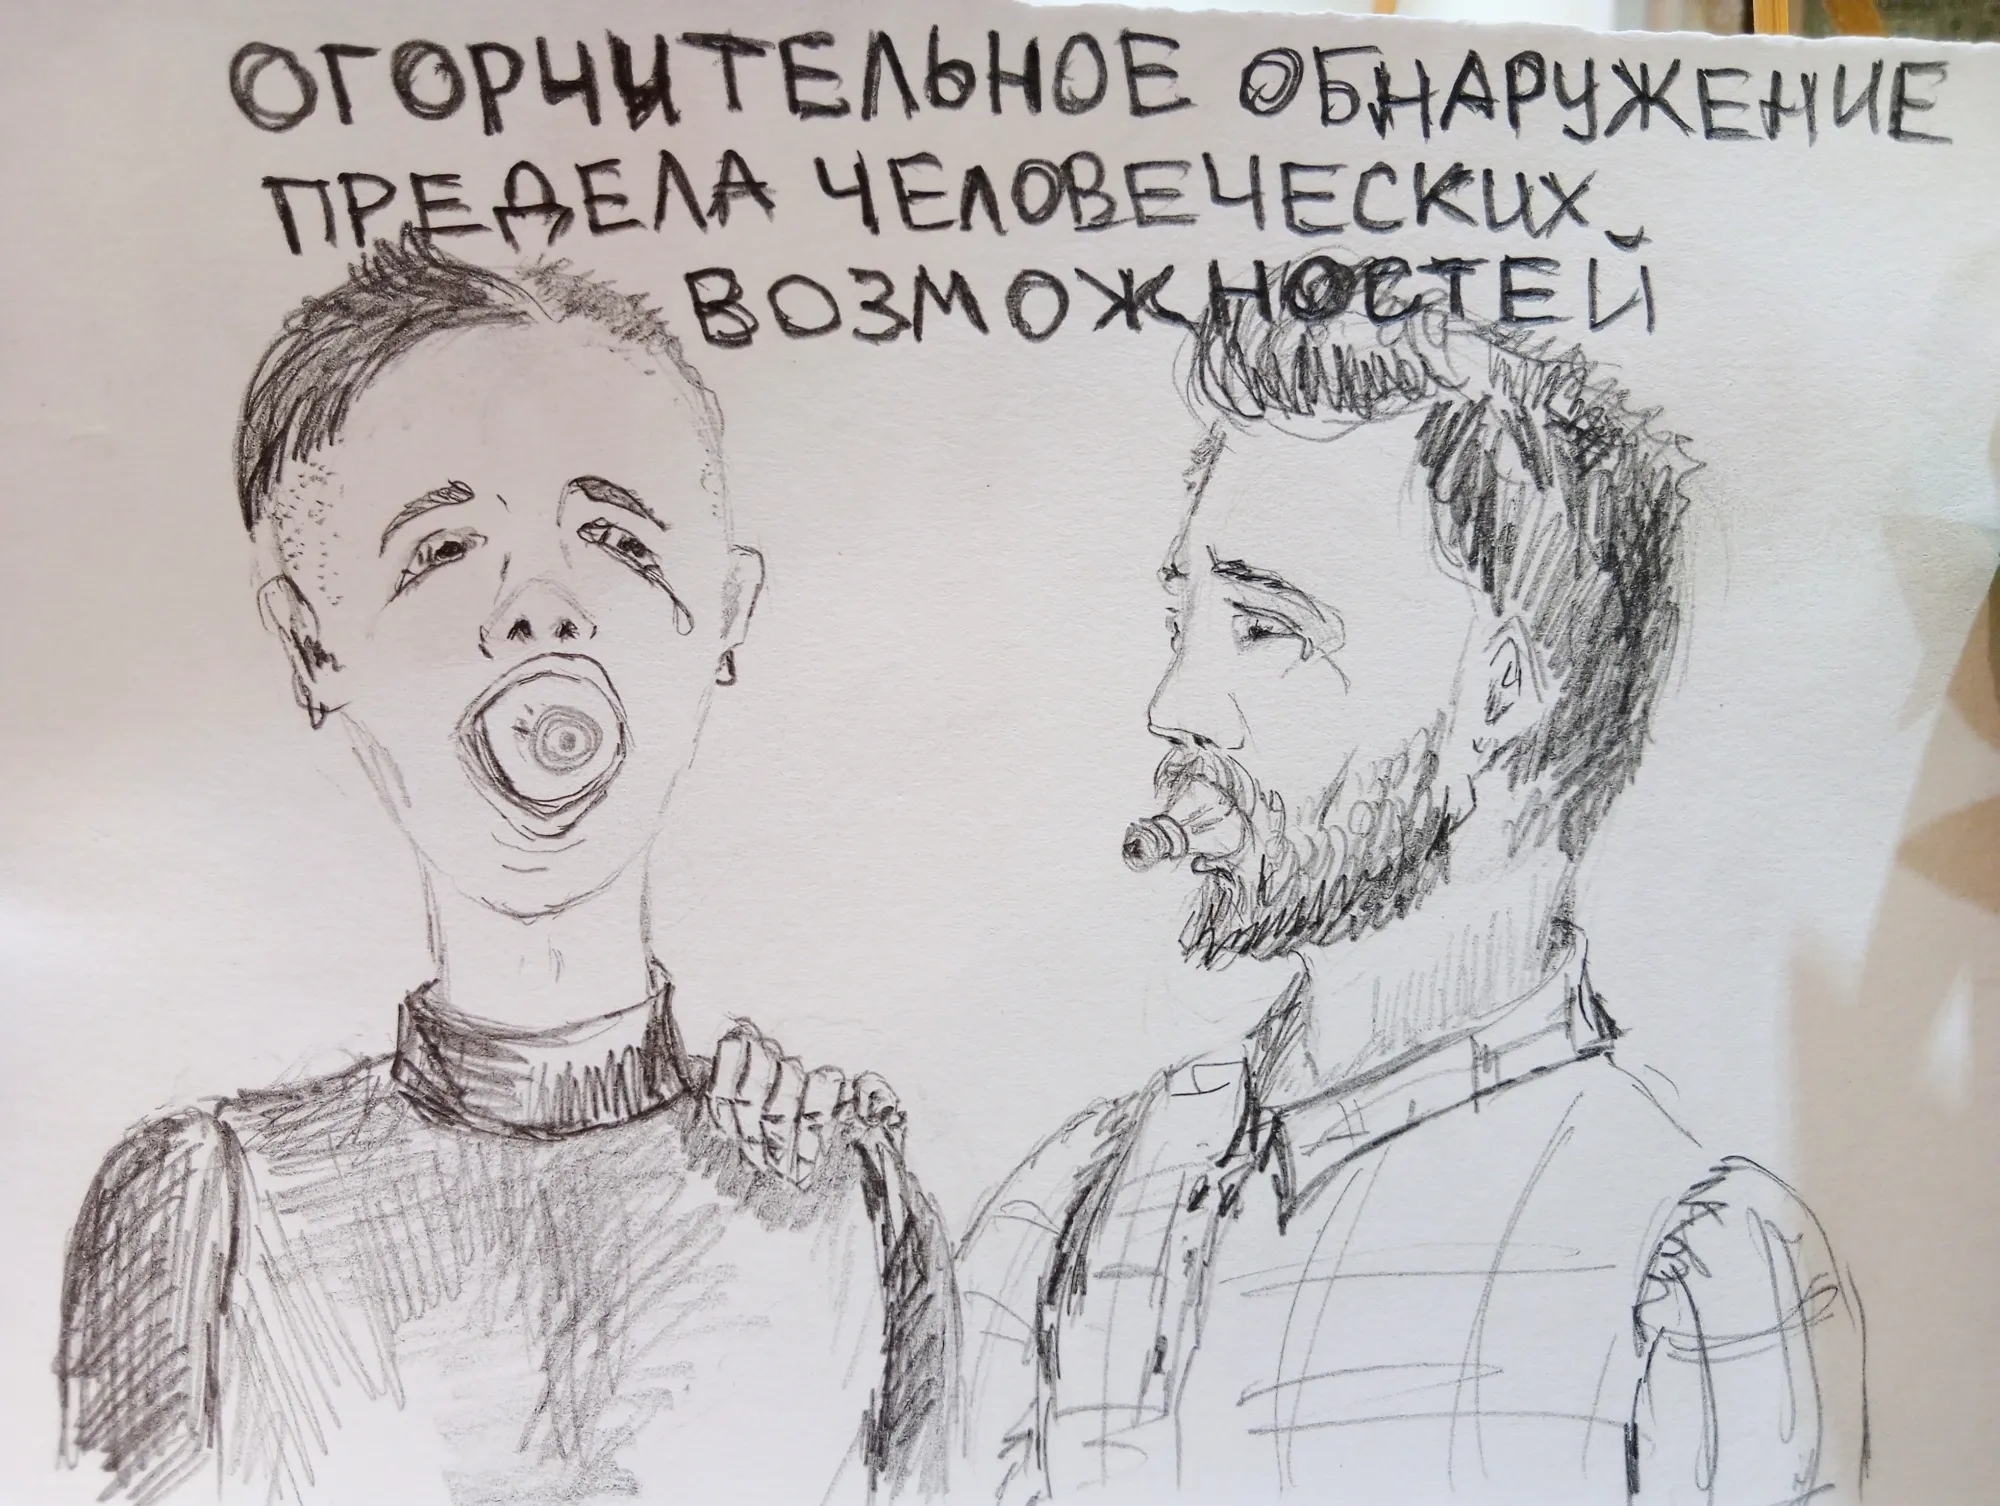 ОГОРЧИТЕЛЬНОЕ ОБНАРУЖЕНИЕ
ПРЕДЕЛА ЧЕЛОВЕЧЕСКИХ
ВОЗМОЖНОСТЕЙ